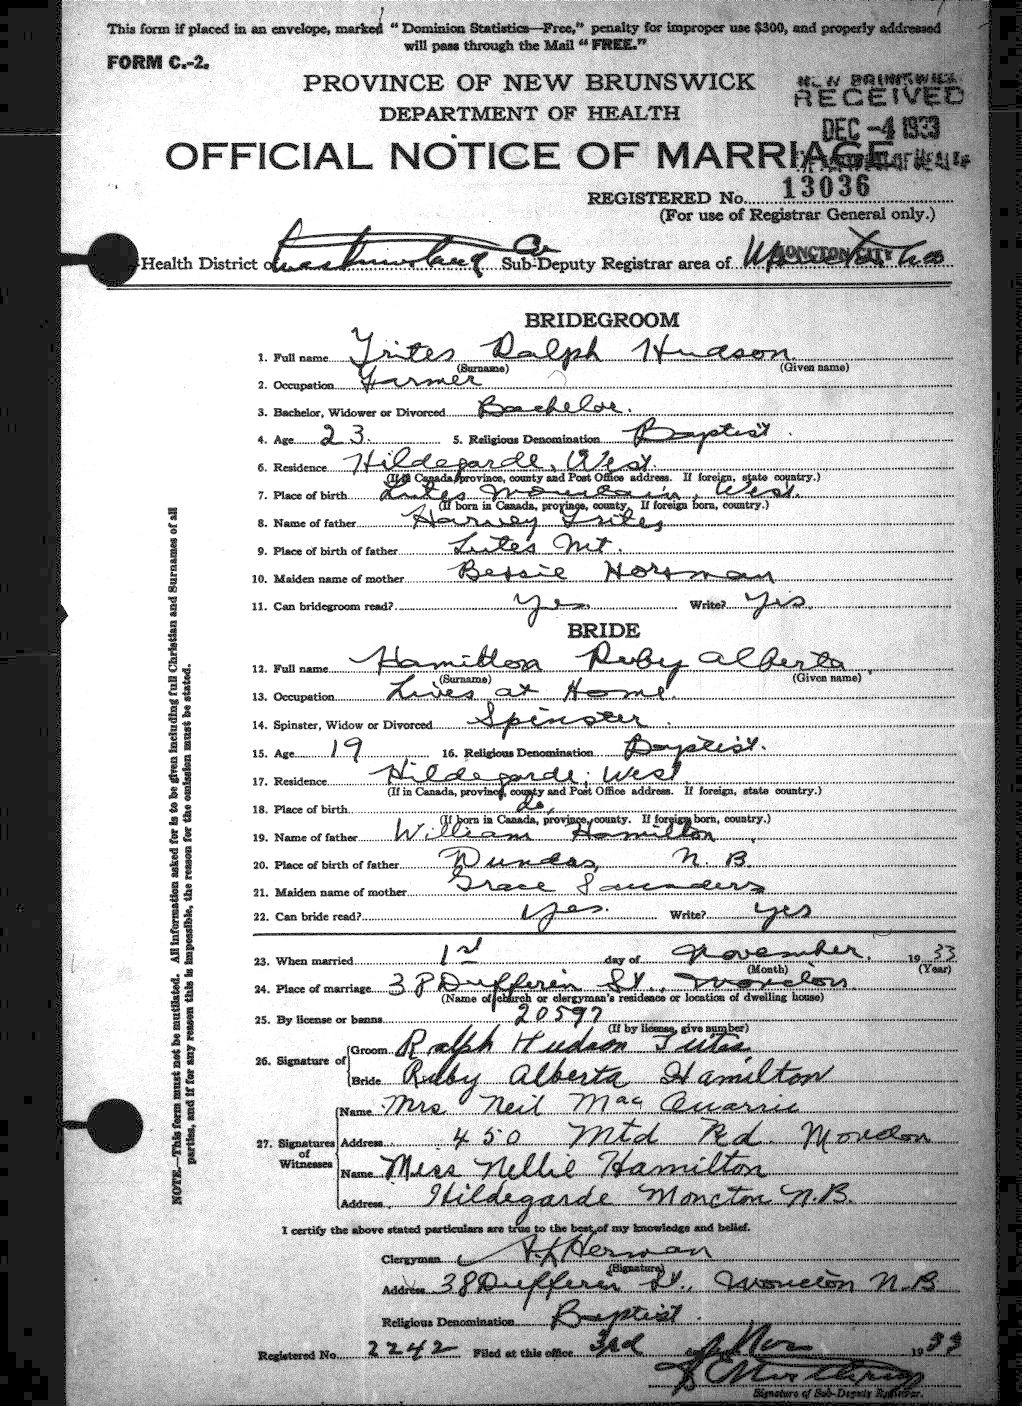 This form if placed in an envelope, marked "Dominion Statistics—Free," penalty for improper use $300, and properly addressed
will pass through the Mail "FREE."
FORM C.-2.
PROVINCE OF NEW BRUNSWICK
DEPARTMENT OF HEALTH
OFFICIAL NOTICE OF MARRIAGE
NEW BRUNSWICK
RECEIVED
DEC -4 1933
DEPARTMENT OF HEALTH
REGISTERED No. 13036
(For use of Registrar General only.)
Health District of Westmorland Co Sub-Deputy Registrar area of MONCTON CITY
BRIDEGROOM
1. Full name Trites Ralph Hudson
(Surname) (Given name)
2. Occupation Farmer
3. Bachelor, Widower or Divorced Bachelor.
4. Age 23. 5. Religious Denomination Baptist.
6. Residence Hildegarde, West.
(If in Canada, province, county and Post Office address. If foreign, state country.)
7. Place of birth Lutes Mountain, West.
(If born in Canada, province, county. If foreign born, country.)
8. Name of father Harvey Trites
9. Place of birth of father Lutes Mt.
10. Maiden name of mother Bessie Horsman
11. Can bridegroom read? Yes. Write? Yes.
BRIDE
12. Full name Hamilton Ruby Alberta
(Surname) (Given name)
13. Occupation Lives at Home.
14. Spinster, Widow or Divorced Spinster.
15. Age 19 16. Religious Denomination Baptist.
17. Residence Hildegarde, West.
(If in Canada, province, county and Post Office address. If foreign, state country.)
18. Place of birth do,
(If born in Canada, province, county. If foreign born, country.)
19. Name of father William Hamilton
20. Place of birth of father Dundas, N. B.
21. Maiden name of mother Grace Saunders
22. Can bride read? Yes. Write? yes
23. When married 1st day of November, 1933
(Month) (Year)
24. Place of marriage 38 Dufferin St., Moncton.
(Name of church or clergyman's residence or location of dwelling house)
25. By license or banns 20597
(If by license, give number)
26. Signature of Groom Ralph Hudson Trites
Bride Ruby Alberta Hamilton
27. Signatures of Witnesses Name Mrs Neil MacQuarrie
Address 450 Mtd Rd. Moncton
Name Miss Nellie Hamilton
Address Hildegarde Moncton N.B.
I certify the above stated particulars are true to the best of my knowledge and belief.
Clergyman Herman
(Signature)
Address 38 Dufferin St., Moncton N.B
Religious Denomination Baptist.
Registered No. 2242 Filed at this office 3rd Nov 1933
Signature of Sub-Deputy Registrar.
NOTE.—This form must not be mutilated. All information asked for is to be given including full Christian and Surnames of all
parties, and if for any reason this is impossible, the reason for the omission must be stated.